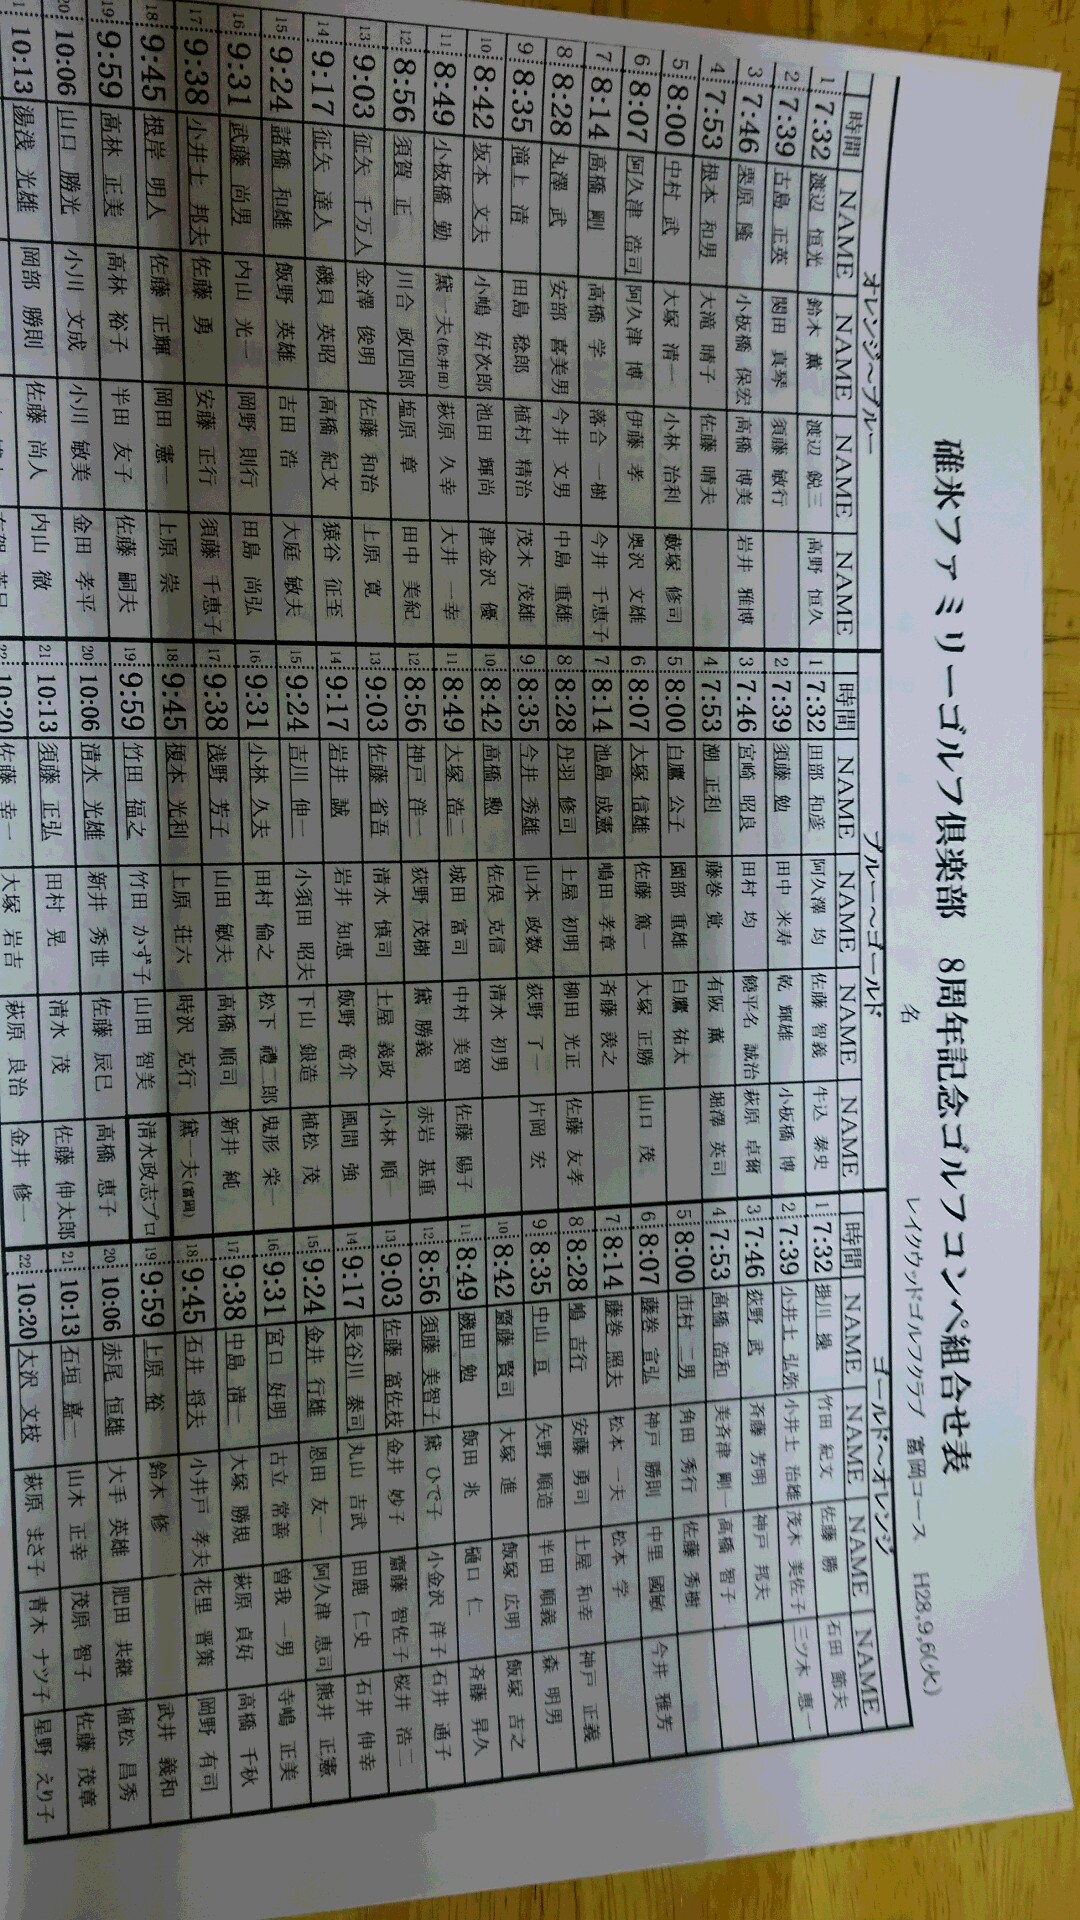 碓氷ファミリーゴルフ倶楽部 8周年記念ゴルフコンペ組合せ表
名 レイクウッドゴルフクラブ 富岡コース H28,9,6(火)
オレンジ~ブルー ブルー~ゴールド ゴールド~オレンジ
時間 NAME NAME NAME NAME 時間 NAME NAME NAME NAME 時間 NAME NAME NAME NAME
1 7:32 渡辺 恒光 鈴木 薫 渡辺 鋭三 高野 恒久 1 7:32 田部 和彦 阿久澤 均 佐藤 智義 牛込 泰史 1 7:32 掛川 操 竹田 紀文 佐藤 勝 石田 節夫
2 7:39 古島 正英 関田 真琴 須藤 敏行 2 7:39 須藤 勉 田中 米寿 乾 輝雄 小板橋 博 2 7:39 小井土 弘弥 小井土 治雄 茂木 美佐子 三ツ木 恵一
3 7:46 栗原 隆 小板橋 保宏 高橋 博美 岩井 雅博 3 7:46 宮崎 昭良 田村 均 饒平名 誠治 萩原 卓爾 3 7:46 荻野 武 斉藤 芳明 神戸 邦夫
4 7:53 根本 和男 大滝 晴子 佐藤 晴夫 4 7:53 潮 正利 藤巻 覚 有阪 薫 堀澤 英司 4 7:53 高橋 浩和 美斉津 剛一 高橋 智子
5 8:00 中村 武 大塚 清一 小林 治利 藪塚 修司 5 8:00 白鷹 公子 園部 重雄 白鷹 祐太 5 8:00 市村 二男 角田 秀行 佐藤 秀樹
6 8:07 阿久津 浩司 阿久津 博 伊藤 孝 奥沢 文雄 6 8:07 大塚 信雄 佐藤 篤一 大塚 正勝 山口 茂 6 8:07 藤巻 宣弘 神戸 勝則 中里 國敏 今井 雅芳
7 8:14 高橋 剛 高橋 学 落合 一樹 今井 千恵子 7 8:14 池島 成憲 嶋田 孝章 斉藤 羨之 7 8:14 藤巻 照夫 松本 一夫 松本 学
8 8:28 丸澤 武 安部 喜美男 今井 文男 中島 重雄 8 8:28 丹羽 修司 土屋 初明 柳田 光正 佐藤 友孝 8 8:28 嶋 吉行 安藤 勇司 土屋 和幸 神戸 正義
9 8:35 滝上 清 田島 稔郎 植村 精治 茂木 茂雄 9 8:35 今井 秀雄 山本 政数 荻野 了一 片岡 宏 9 8:35 中山 亘 矢野 順造 半田 順義 森 明男
10 8:42 坂本 文夫 小嶋 好次郎 池田 輝尚 津金沢 優 10 8:42 高橋 勲 佐俣 克信 清水 初男 10 8:42 齋藤 賢司 大塚 進 飯塚 広明 飯塚 吉之
11 8:49 小板橋 勤 黛 一夫(松井田) 萩原 久幸 大井 一幸 11 8:49 大塚 浩二 城田 富司 中村 美智 佐藤 陽子 11 8:49 磯田 勉 飯田 兆 樋口 仁 斉藤 昇久
12 8:56 須賀 正 川合 政四郎 塩原 章 田中 美紀 12 8:56 神戸 洋一 荻野 茂樹 黛 勝義 赤岩 基重 12 8:56 須藤 美智子 黛 ひで子 小金沢 洋子 石井 通子
13 9:03 征矢 千万人 金澤 俊明 佐藤 和治 上原 寛 13 9:03 佐藤 省吾 清水 慎司 土屋 義政 小林 順一 13 9:03 佐藤 富佐枝 金井 妙子 齋藤 智佐子 桜井 浩二
14 9:17 征矢 達人 磯貝 英昭 高橋 紀文 猿谷 征至 14 9:17 岩井 誠 岩井 知恵 飯野 竜介 風間 強 14 9:17 長谷川 泰司 丸山 吉武 田鹿 仁史 石井 伸幸
15 9:24 諸橋 和雄 飯野 英雄 吉田 浩 大庭 敏夫 15 9:24 吉川 伸一 小須田 昭夫 下山 銀造 植松 茂 15 9:24 金井 行雄 恩田 友一 阿久津 恵司 熊井 正憲
16 9:31 武藤 尚男 内山 光一 岡野 則行 田島 尚弘 16 9:31 小林 久夫 田村 倫之 松下 禮二郎 鬼形 栄一 16 9:31 宮口 好明 古立 常善 曽我 一男 寺嶋 正美
17 9:38 小井土 邦夫 佐藤 勇 安藤 正行 須藤 千恵子 17 9:38 浅野 芳子 山田 敏夫 高橋 順司 新井 純 17 9:38 中島 清一 大塚 勝規 萩原 貞好 高橋 千秋
18 9:45 根岸 明人 佐藤 正輝 岡田 憲一 上原 崇 18 9:45 榎本 光利 上原 荘六 時沢 克行 黛一夫(富岡) 18 9:45 石井 将夫 小井戸 孝夫 花里 晋策 岡野 有司
19 9:59 高林 正美 高林 裕子 半田 友子 佐藤 嗣夫 19 9:59 竹田 福之 竹田 かず子 山田 智美 清水政志プロ 19 9:59 上原 裕 鈴木 修 武井 義和
20 10:06 山口 勝光 小川 文成 小川 敏美 金田 孝平 20 10:06 清水 光雄 新井 秀世 佐藤 辰巳 高橋 恵子 20 10:06 赤尾 恒雄 大手 英雄 肥田 共継 植松 昌秀
10:13 湯浅 光雄 岡部 勝則 佐藤 尚人 内山 徹 21 10:13 須藤 正弘 田村 晃 清水 茂 佐藤 伸太郎 21 10:13 石垣 嘉二 山木 正幸 茂原 智子 佐藤 茂章
22 10:20 佐藤 幸一 大塚 岩吉 萩原 良治 金井 修一 22 10:20 大沢 文枝 萩原 まさ子 青木 ナツ子 星野 えり子